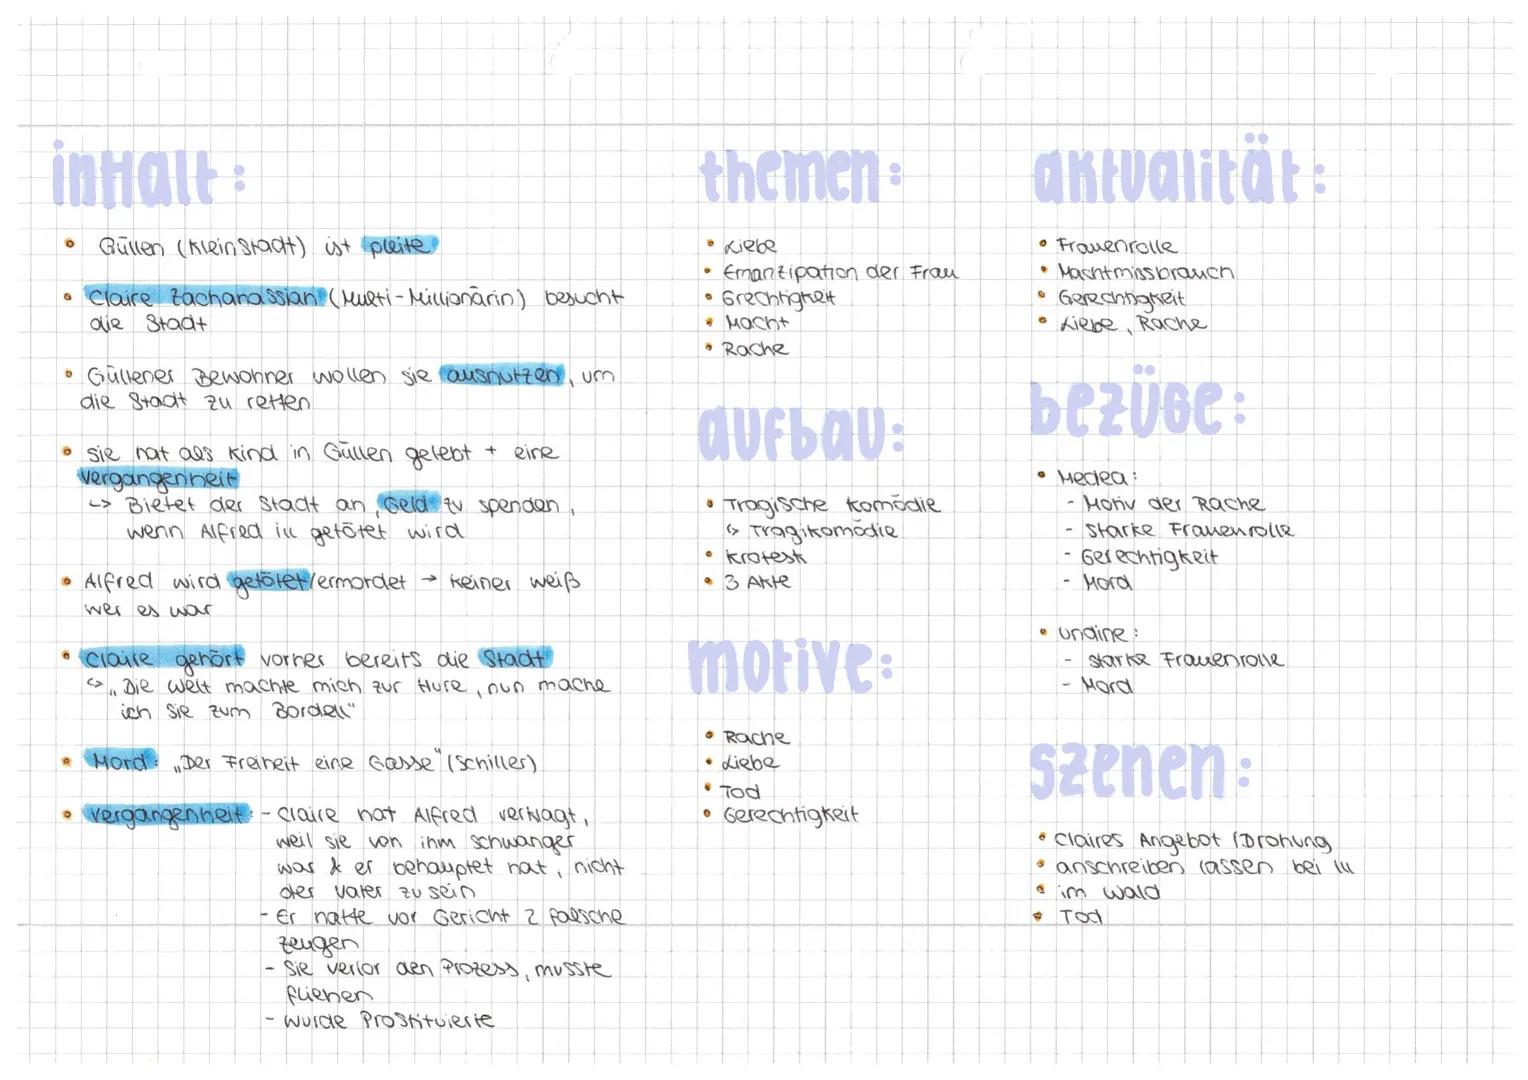 inHalt:
• Güllen (Kleinstadt) ist pleite
• Claire Zachanassian (Multi-Millionärin) besucht
die Stadt
• Güllener Bewohner wollen sie ausnutzen, um
die Stadt zu retten
• sie hat als Kind in Güllen gelebt + eine
Vergangenheit
↳ Bietet der Stadt an, Geld zu spenden,
wenn Alfred ill getötet wird
• Alfred wird getötet/ermordet → keiner weiß
wer es war
• Claire gehört vorher bereits die Stadt
↳ „Die Welt machte mich zur Hure, nun mache
ich sie zum Bordell"
• Mord: „Der Freiheit eine Gasse" (Schiller)
• Vergangenheit: - Claire hat Alfred verklagt,
weil sie von ihm schwanger
war & er behauptet hat, nicht
der Vater zu sein
- Er hatte vor Gericht 2 falsche
Zeugen
- Sie verlor den Prozess, musste
fliehen
- wurde Prostituierte
themen:
• Liebe
• Emanzipation der Frau
• Grechtigkeit
• Macht
• Rache
aufbau:
• Tragische Komödie
↳ Tragikomödie
• Krotesk
• 3 Akte
motive:
• Rache
• Liebe
• Tod
• Gerechtigkeit
aktualität:
• Frauenrolle
• Machtmissbrauch
• Gerechtigkeit
• Liebe, Rache
bezüge:
• Medea:
- Motiv der Rache
- Starke Frauenrolle
- Gerechtigkeit
- Mord
• undine:
- starke Frauenrolle
- Mord
szenen:
• Claires Angebot /Drohung
• anschreiben lassen bei ill
• im Wald
• Tod